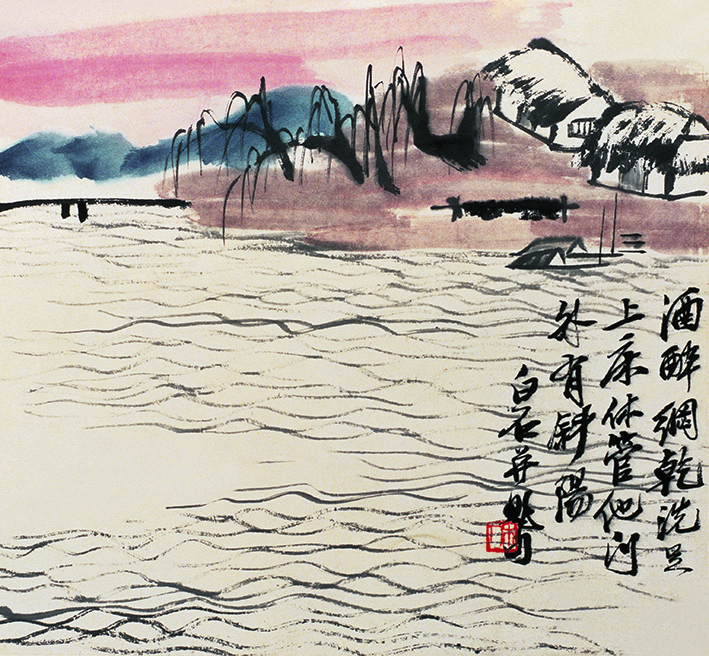 酒醉網乾洗足
上床休管他河
外有斜陽
白石并題